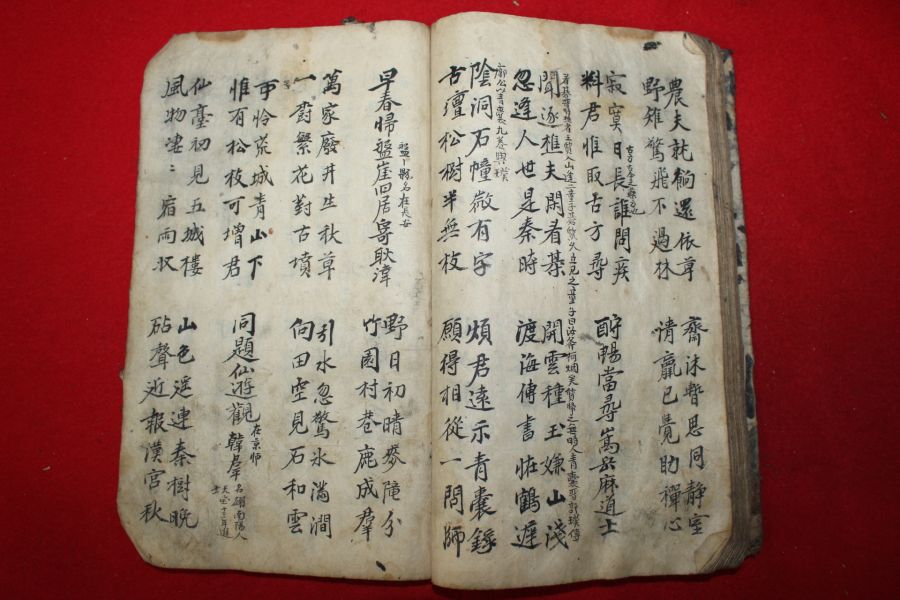 農夫就餉還依草
野雉驚飛不過林
齋沐暫思同靜室
情羸已覺助禪心
寂寞日長誰問疾
料君惟取古方尋
酧暢當尋嵩岳麻道士
聞逐樵夫閑看棊
忽逢人世是秦時
開雲種玉嫌山淺
渡海傳書怪鶴遲
郭公以青囊九卷與璞
陰洞石幢微有字
古壇松樹半無枝
煩君遠示青囊錄
願得相從一問師
早春歸盤崖旧居寄耿湋
縣名在長安
野日初晴麥隴分
竹園村巷鹿成羣
萬家廢井生秋草
一樹繁花對古墳
引水忽驚氷滿澗
向田空見石和雲
怜荒城青山下
惟有松枝可增君
同題仙遊觀 在京師 韓翃
名翃南陽人
天宝十三年進士
仙臺初見五城樓
風物凄〻宿雨収
山色遥連秦樹晚
砧聲近報漢宮秋